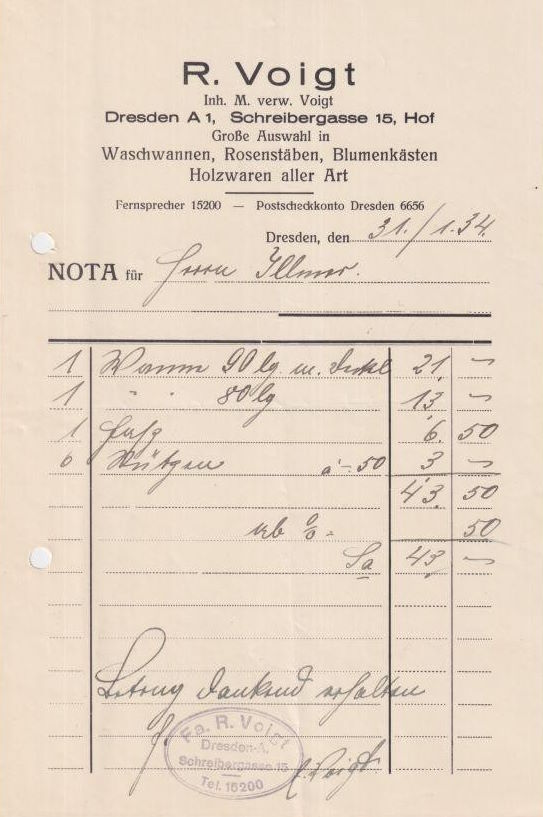 R. Voigt
Inh. M. verw. Voigt
Dresden A 1, Schreibergasse 15, Hof
Große Auswahl in
Waschwannen, Rosenstäben, Blumenkästen
Holzwaren aller Art
Fernsprecher 15200 — Postscheckkonto Dresden 6656
Dresden, den 31./1.34.
NOTA für Herrn Illmer.
1 Wanne 90 lg. m. Deckel 21 —
1 " " 80 lg 13 —
1 Faß 6. 50
6 à -.50 3 —
43. 50
ab % 50
Sa 43, —
Betrag dankend erhalten
Fa. R. Voigt
Dresden-A.
Schreibergasse 15
Tel. 15200
Voigt